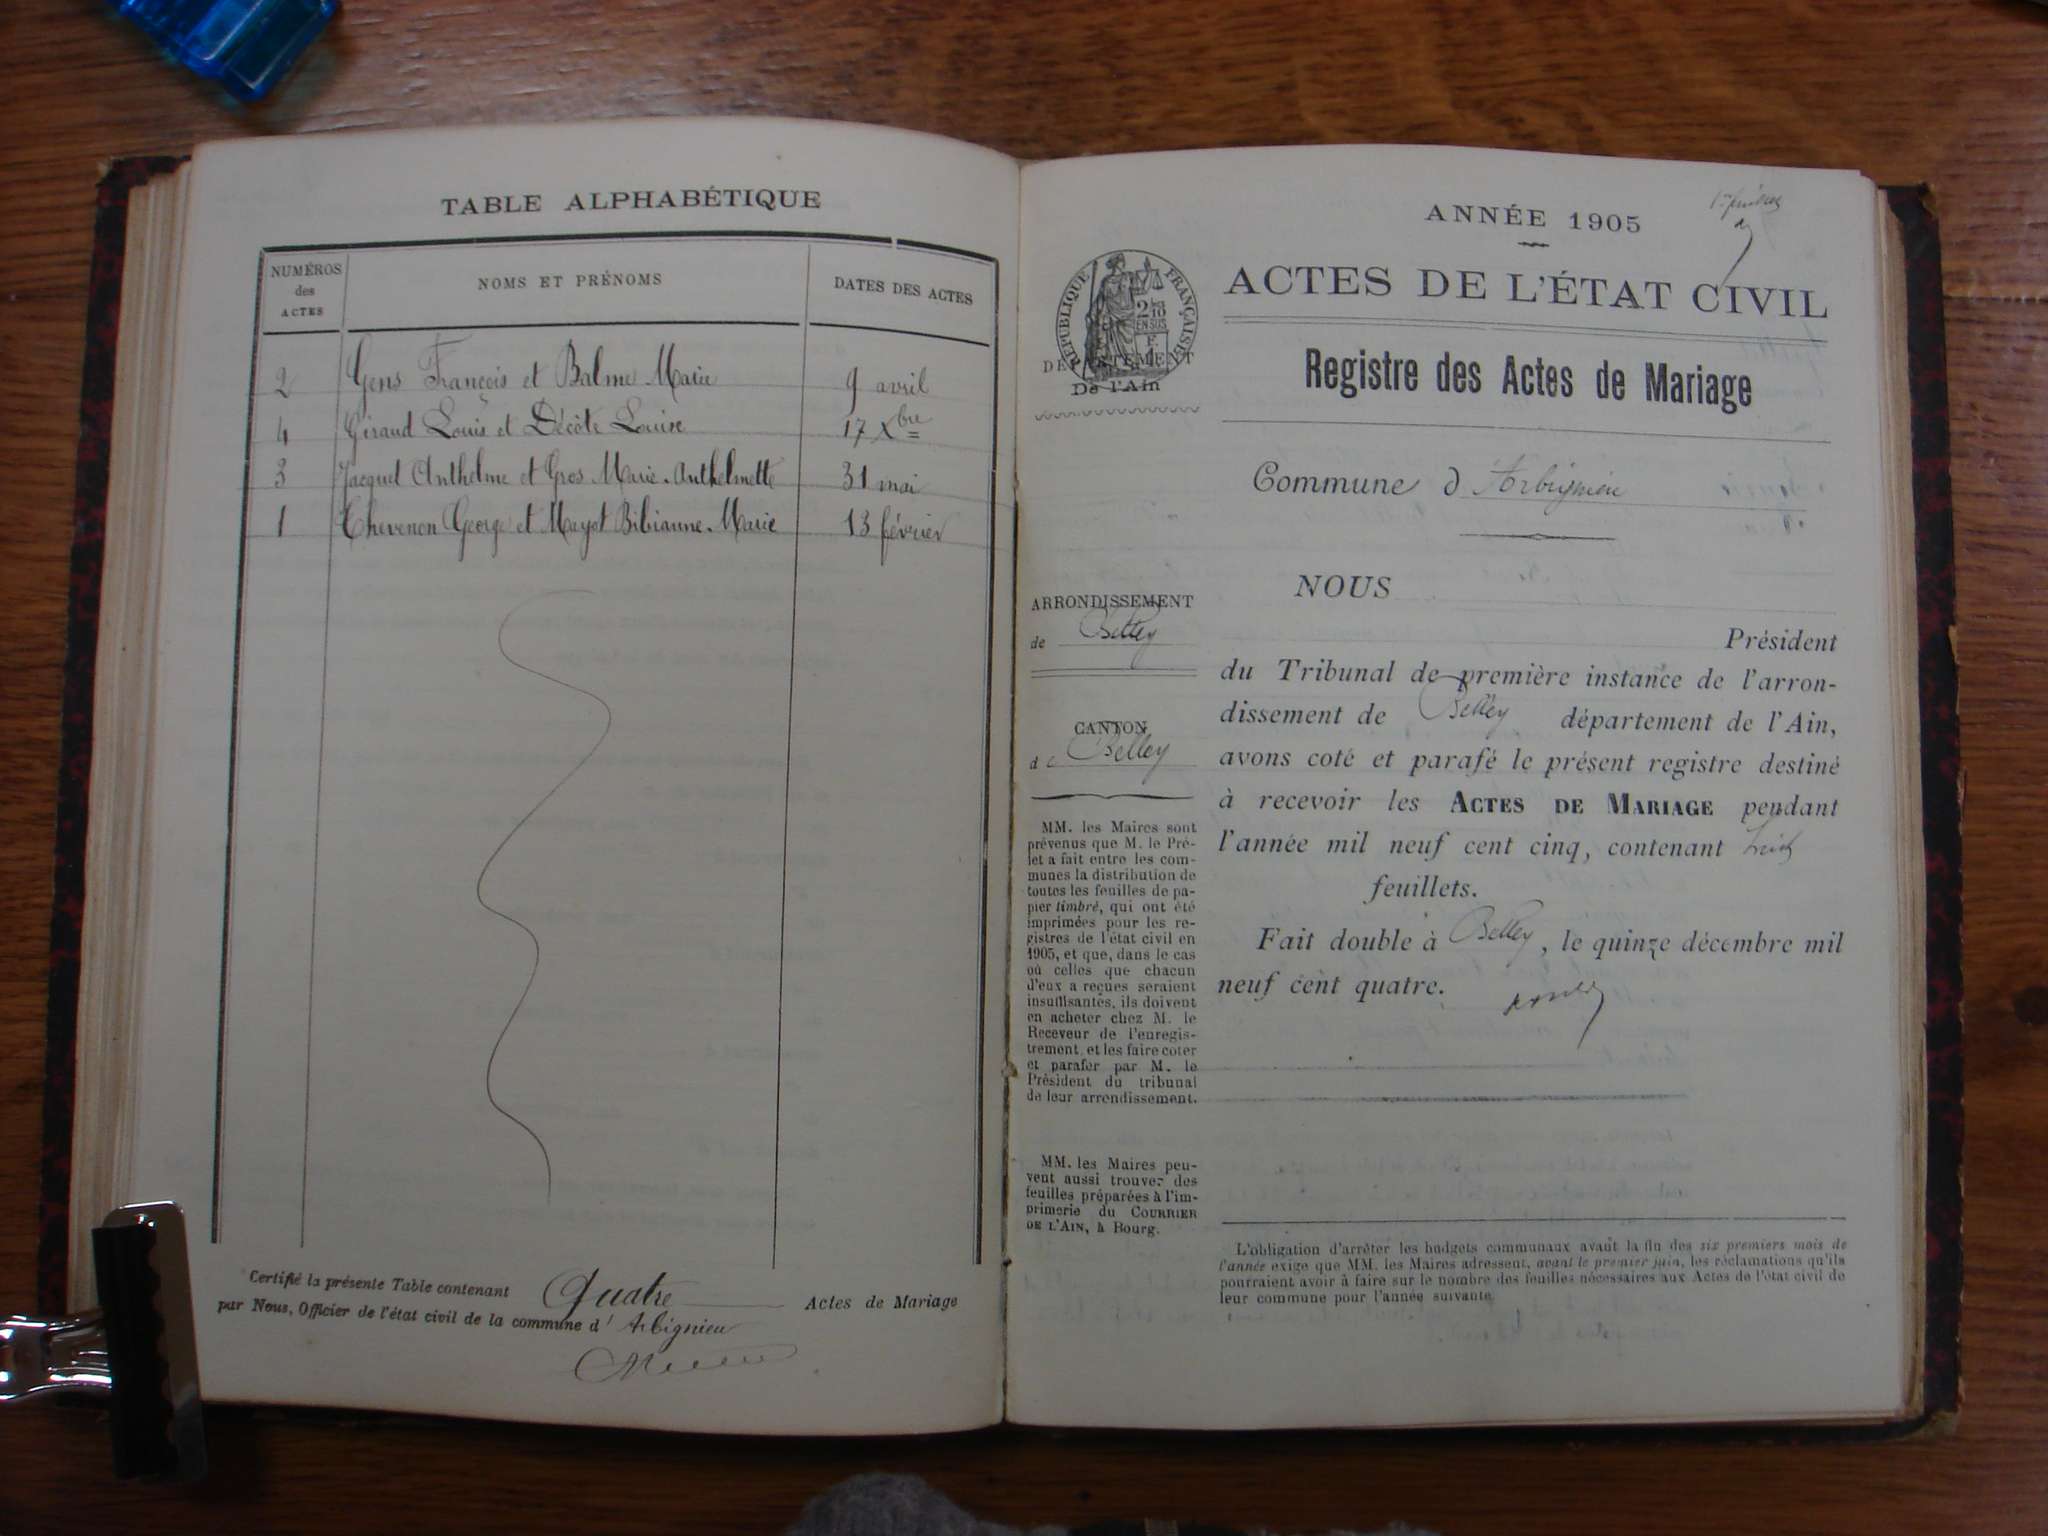 TABLE ALPHABÉTIQUE
NUMÉROS
des
ACTES
NOMS ET PRÉNOMS
DATES DES ACTES
2 Gens François et Balme Marie 9 avril
4 Giraud Louis et Décote Louise 17 Xbre
3 Jacquet Anthelme et Gros Marie-Anthelmette 31 mai
1 Thevenon George et Mayot Bibianne-Marie 13 février
Certifié la présente Table contenant Quatre Actes de Mariage
par Nous, Officier de l'état civil de la commune d' Arbignieu
ANNÉE 1905
ACTES DE L'ÉTAT CIVIL
RÉPUBLIQUE FRANÇAISE
2/10
EN SUS
DÉPARTEMENT
De l'Ain
Registre des Actes de Mariage
Commune d Arbignieu
ARRONDISSEMENT
de Belley
CANTON
de Belley
MM. les Maires sont
prévenus que M. le Pré-
fet a fait entre les com-
munes la distribution de
toutes les feuilles de pa-
pier timbré, qui ont été
imprimées pour les re-
gistres de l'état civil en
1905, et que, dans le cas
où celles que chacun
d'eux a reçues seraient
insuffisantes, ils doivent
en acheter chez M. le
Receveur de l'enregis-
trement, et les faire coter
et parafer par M. le
Président du tribunal
de leur arrondissement.
MM. les Maires peu-
vent aussi trouver des
feuilles préparées à l'im-
primerie du COURRIER
DE L'AIN, à Bourg.
NOUS
Président
du Tribunal de première instance de l'arron-
dissement de Belley département de l'Ain,
avons coté et parafé le présent registre destiné
à recevoir les ACTES DE MARIAGE pendant
l'année mil neuf cent cinq, contenant huit
feuillets.
Fait double à Belley, le quinze décembre mil
neuf cent quatre.
L'obligation d'arrêter les budgets communaux avant la fin des six premiers mois de
l'année exige que MM. les Maires adressent, avant le premier juin, les réclamations qu'ils
pourraient avoir à faire sur le nombre des feuilles nécessaires aux Actes de l'état civil de
leur commune pour l'année suivante.